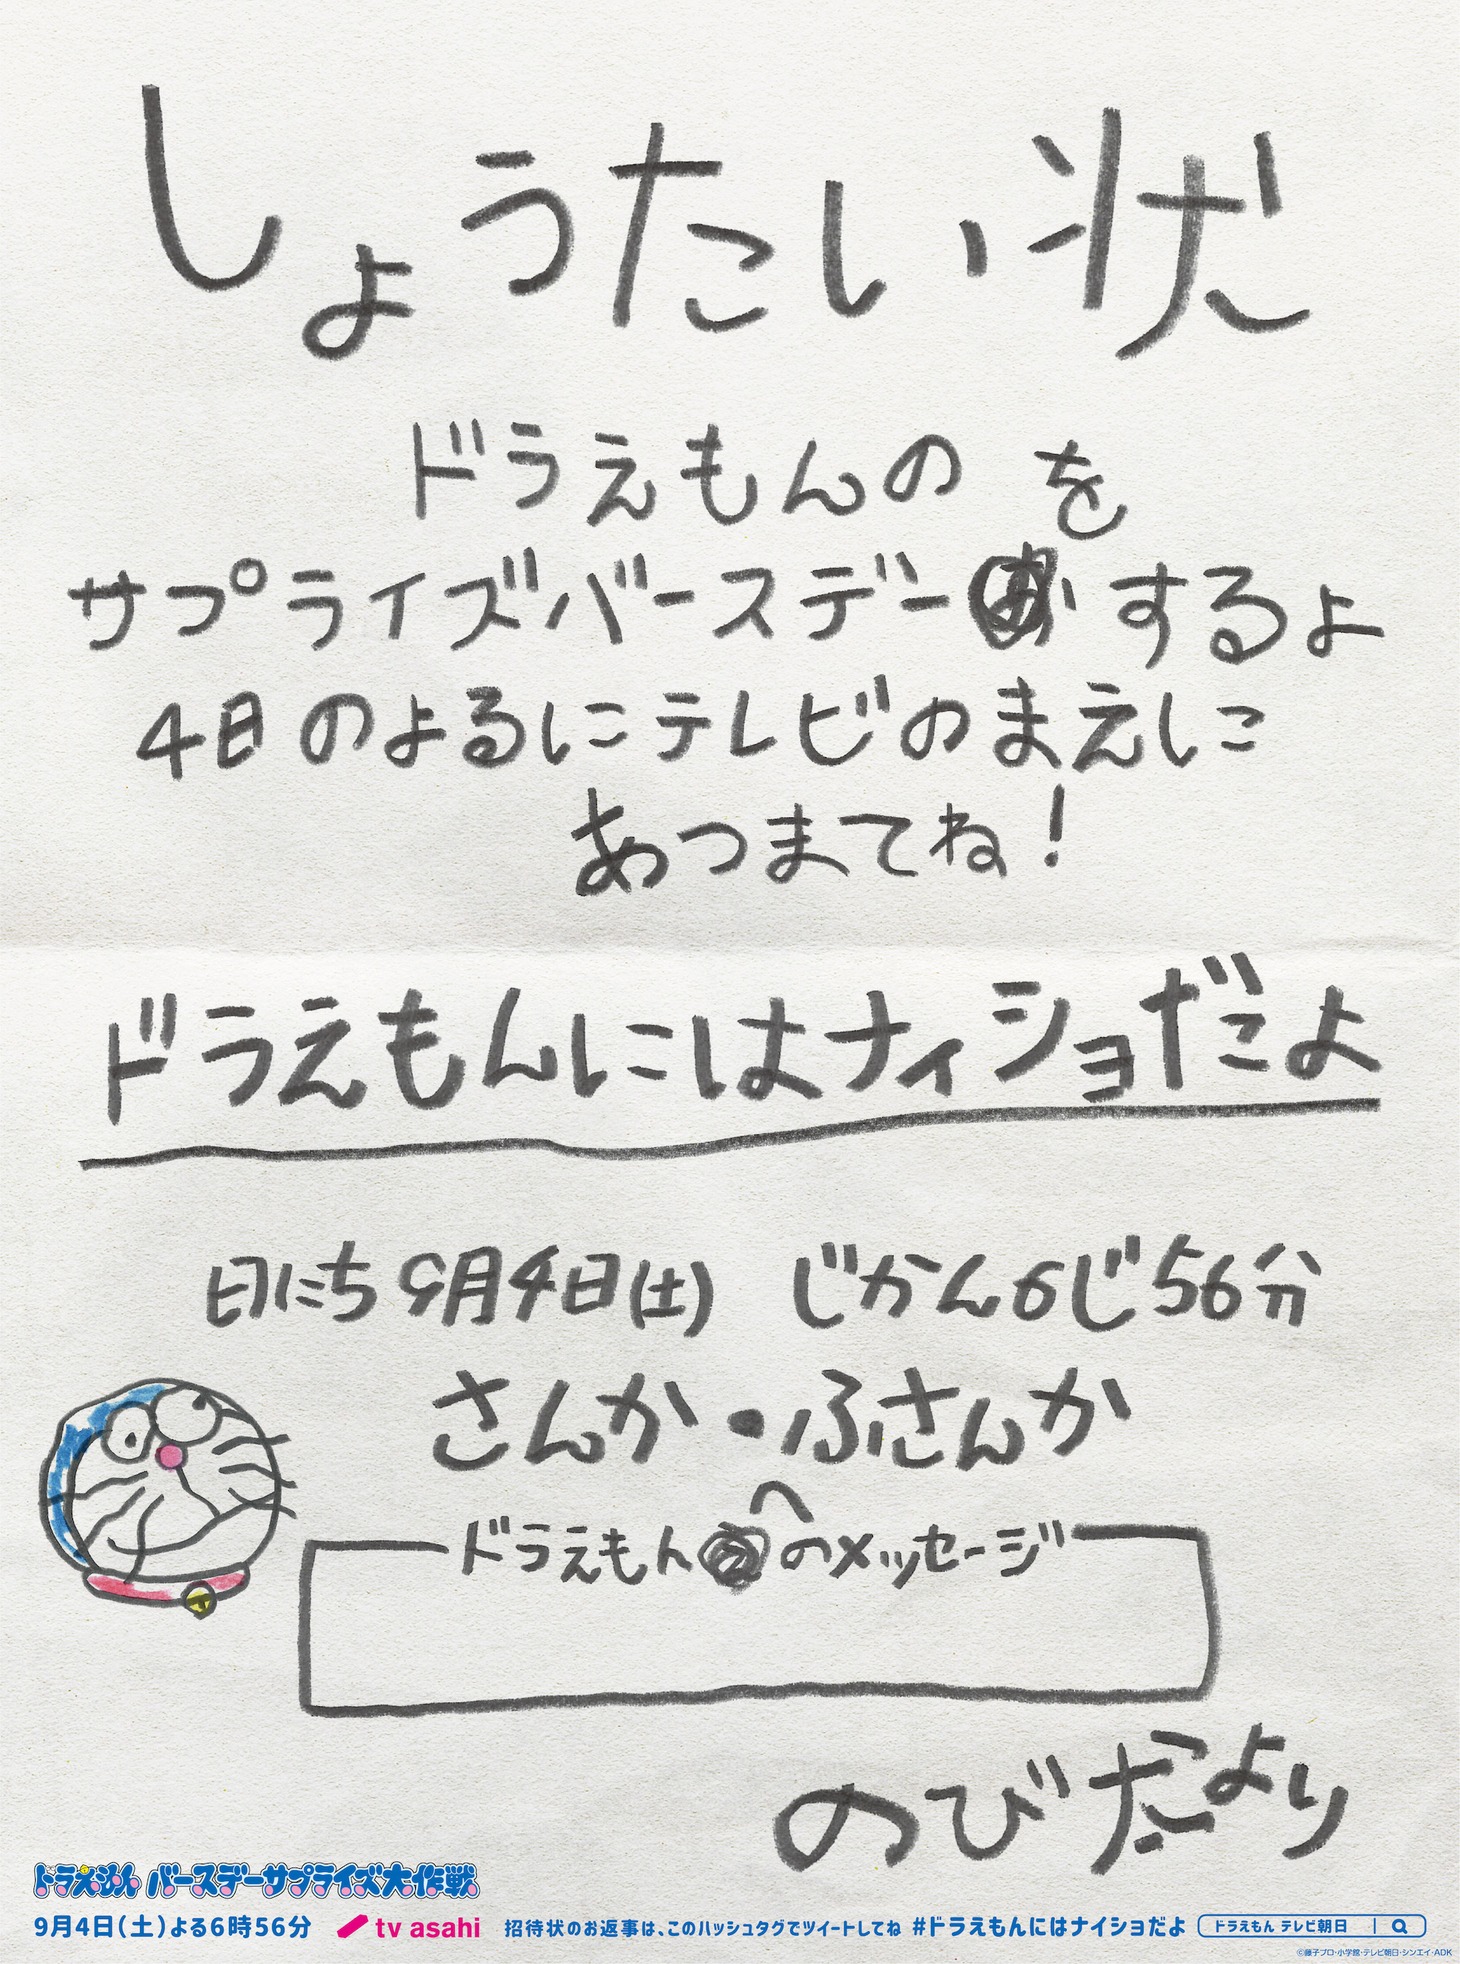 しょうたい状
ドラえもんの を
サプライズバースデー するよ
4日のよるにテレビのまえに
あつまてね!
ドラえもんにはナイショだよ
日にち9月4日(土) じかん6じ56分
さんか・ふさんか
ドラえもんへのメッセージ
のびたこより
ドラえもん バースデーサプライズ大作戦
9月4日(土)よる6時56分 tv asahi 招待状のお返事は、このハッシュタグでツイートしてね #ドラえもんにはナイショだよ ドラえもん テレビ朝日
©藤子プロ・小学館・テレビ朝日・シンエイ・ADK